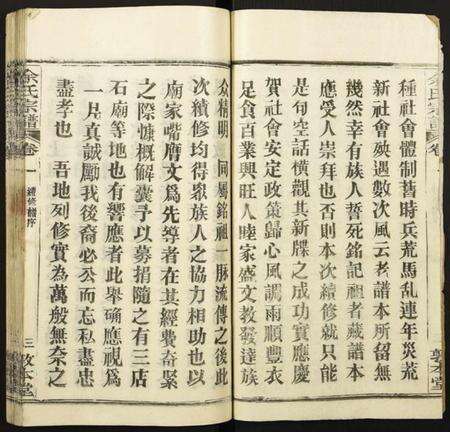 種社會體制舊時兵荒馬乱連年災荒
新社會殃遇數次風云老譜本所留無
幾然幸有族人誓死銘記祖者藏譜本
應受人崇拜也否則本次續修就只能
是句空話橫觀其新牒之成功實應慶
賀社會安定政策歸心風調雨順豐衣
足食百業興旺人睦家盛文教發達族
众精明 同屬銘祖一脉流傳之後此
次續修均得眾族人之協力相助也以
廟家嘴膺文爲先導者在其經費奇緊
之際慷概解囊予以募捐隨之有三店
石廟等地也有響應者此舉確應視爲
一片真誠勵我後裔必公而忘私盡忠
盡孝也 吾地列修實為萬般無奈之
余氏宗譜
卷一
續修譜序
三
敦本堂